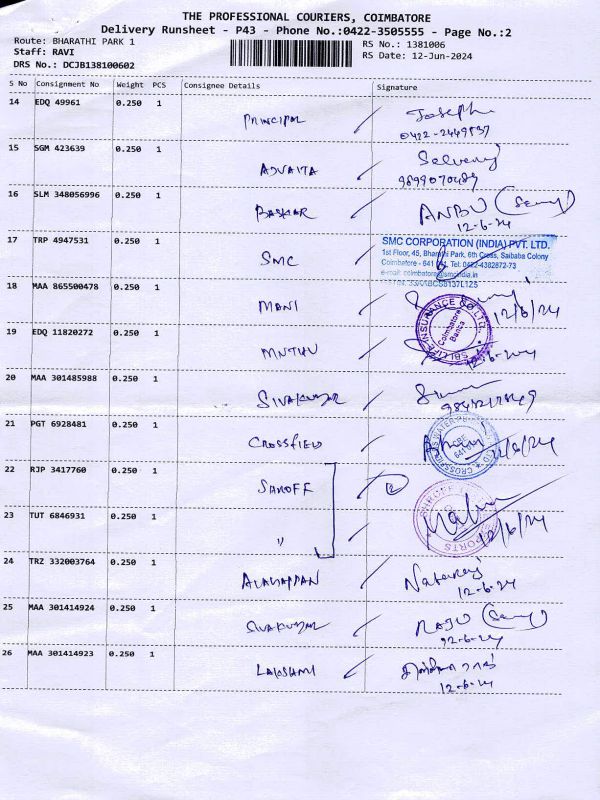 THE PROFESSIONAL COURIERS, COIMBATORE
Delivery Runsheet - P43 - Phone No.:0422-3505555 - Page No.:2
Route: BHARATHI PARK 1
RS No.: 1381006
Staff: RAVI
RS Date: 12-Jun-2024
DRS No.: DCJB138100602
S No Consignment No Weight PCS Consignee Details Signature
14 EDQ 49961 0.250 1 PRINCIPAL Joseph
15 SGM 423639 0.250 1 ADVAITA
16 SLM 348056996 0.250 1 BASKAR ANBU
12-6-24
17 TRP 4947531 0.250 1 SMC
SMC CORPORATION (INDIA) PVT. LTD.
1st Floor, 45, Bharathi Park, 6th Cross, Saibaba Colony
Coimbatore - 641 Tel: 0422-4382872-73
e-mail: coimbatore@smcindia.in
18 MAA 865500478 0.250 1 MANI 12/6/24
19 EDQ 11820272 0.250 1 MUTHU
SBI LIFE INSURANCE CO LTD.
Coimbatore
12-6-24
20 MAA 301485988 0.250 1 SIVAKUMAR
21 PGT 6928481 0.250 1 CROSSFIELD
22 RJP 3417760 0.250 1 SAROFF
23 TUT 6846931 0.250 1 "
12/6/24
24 TRZ 332003764 0.250 1 ALAGAPPAN Nataraj
12-6-24
25 MAA 301414924 0.250 1 SIVAKUMAR RAJU
12-6-24
26 MAA 301414923 0.250 1 LAKSHMI
12-6-24